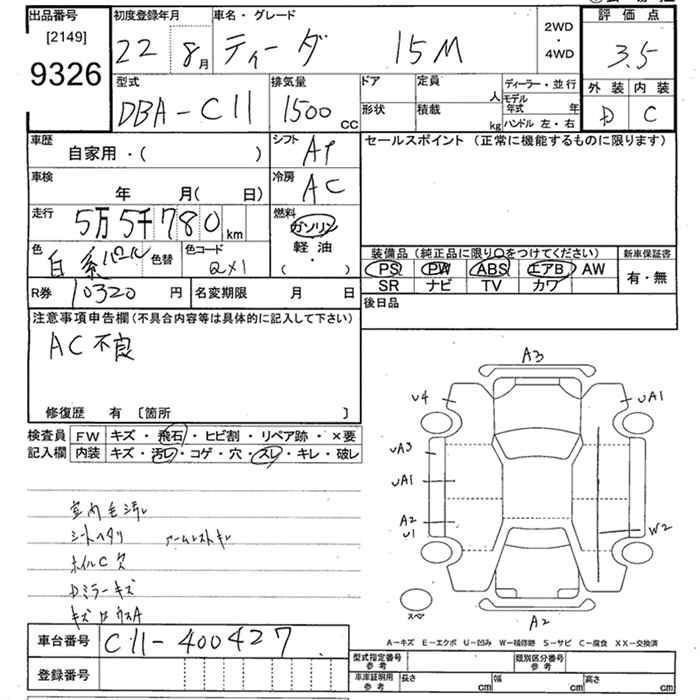 出品番号 初度登録年月 車名・グレード 2WD・4WD 評価点
[2149] 22 8月 ティーダ 15M 3.5
9326 外装 内装
D C
型式 排気量 ドア 定員 人 ディーラー・並行
DBA-C11 1500 CC 形状 積載 kg モデル年式 年
ハンドル 左・右
車歴 自家用・( ) シフト AT セールスポイント (正常に機能するものに限ります)
車検 年 月( 日) 冷房 AC
走行 5万5千780 km 燃料 ガソリン
軽油
( )
色 白系パール 色替 色コード QX1
装備品 (純正品に限り○をつけてください) 新車保証書
PS PW ABS エアB AW 有・無
SR ナビ TV カワ
R券 10320 円 名変期限 月 日 後日品
注意事項申告欄(不具合内容等は具体的に記入して下さい)
AC不良
修復歴 有 [箇所 ]
検査員 FW キズ・飛石・ヒビ割・リペア跡・×要
記入欄 内装 キズ・汚レ・コゲ・穴・スレ・キレ・破レ
室内毛汚レ
シートヘタリ アームレストキレ
ホイルC欠
Dミラーキズ
A3
U4 UA1
UA3
UA1
A2
U1
W2
スペア
A2
A-キズ E-エクボ U-凹み W-補修跡 S-サビ C-腐食 XX-交換済
車台番号 C11-400427
登録番号
型式指定番号 参考 類別区分番号 参考
車庫証明用 参考 長さ cm 幅 cm 高さ cm